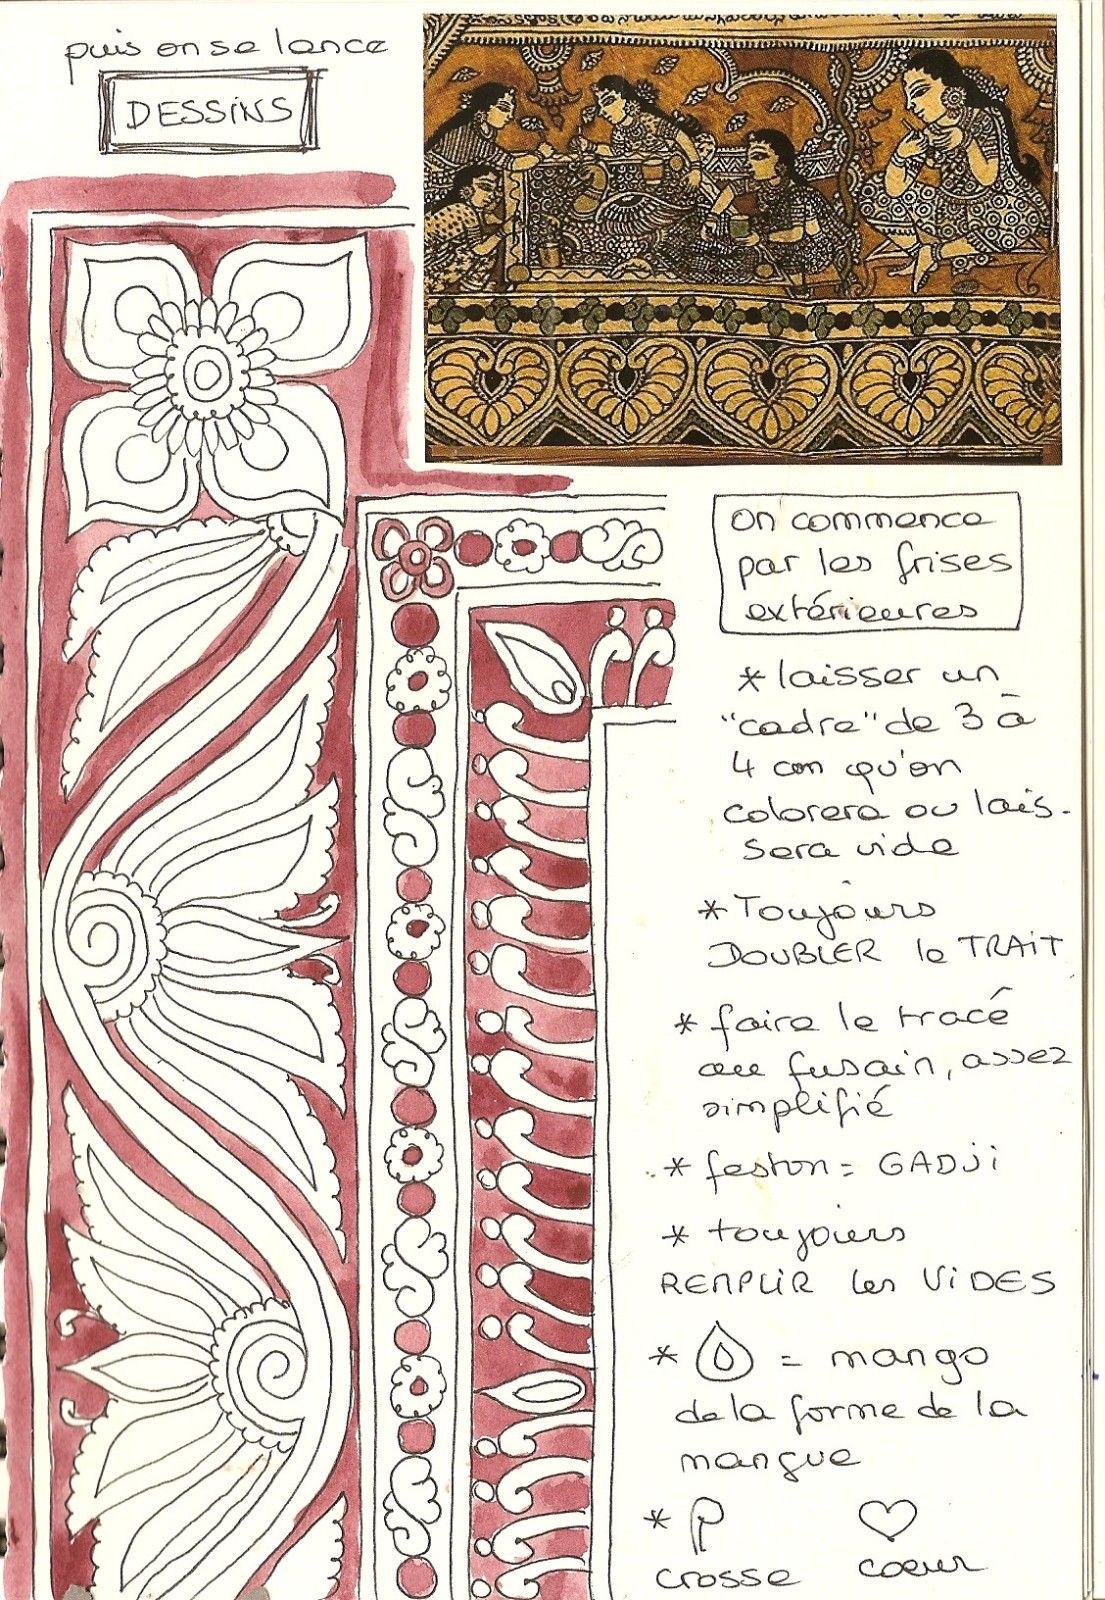 puis on se lance
DESSINS
on commence
par les frises
extérieures
* laisser un
"cadre" de 3 à
4 cm qu'on
colorera ou lais-
sera vide
* Toujours
DOUBLER le TRAIT
* faire le tracé
au fusain, assez
simplifié
* feston = GADJI
* toujours
REMPLIR les VIDES
* = mango
de la forme de la
mangue
*
crosse coeur